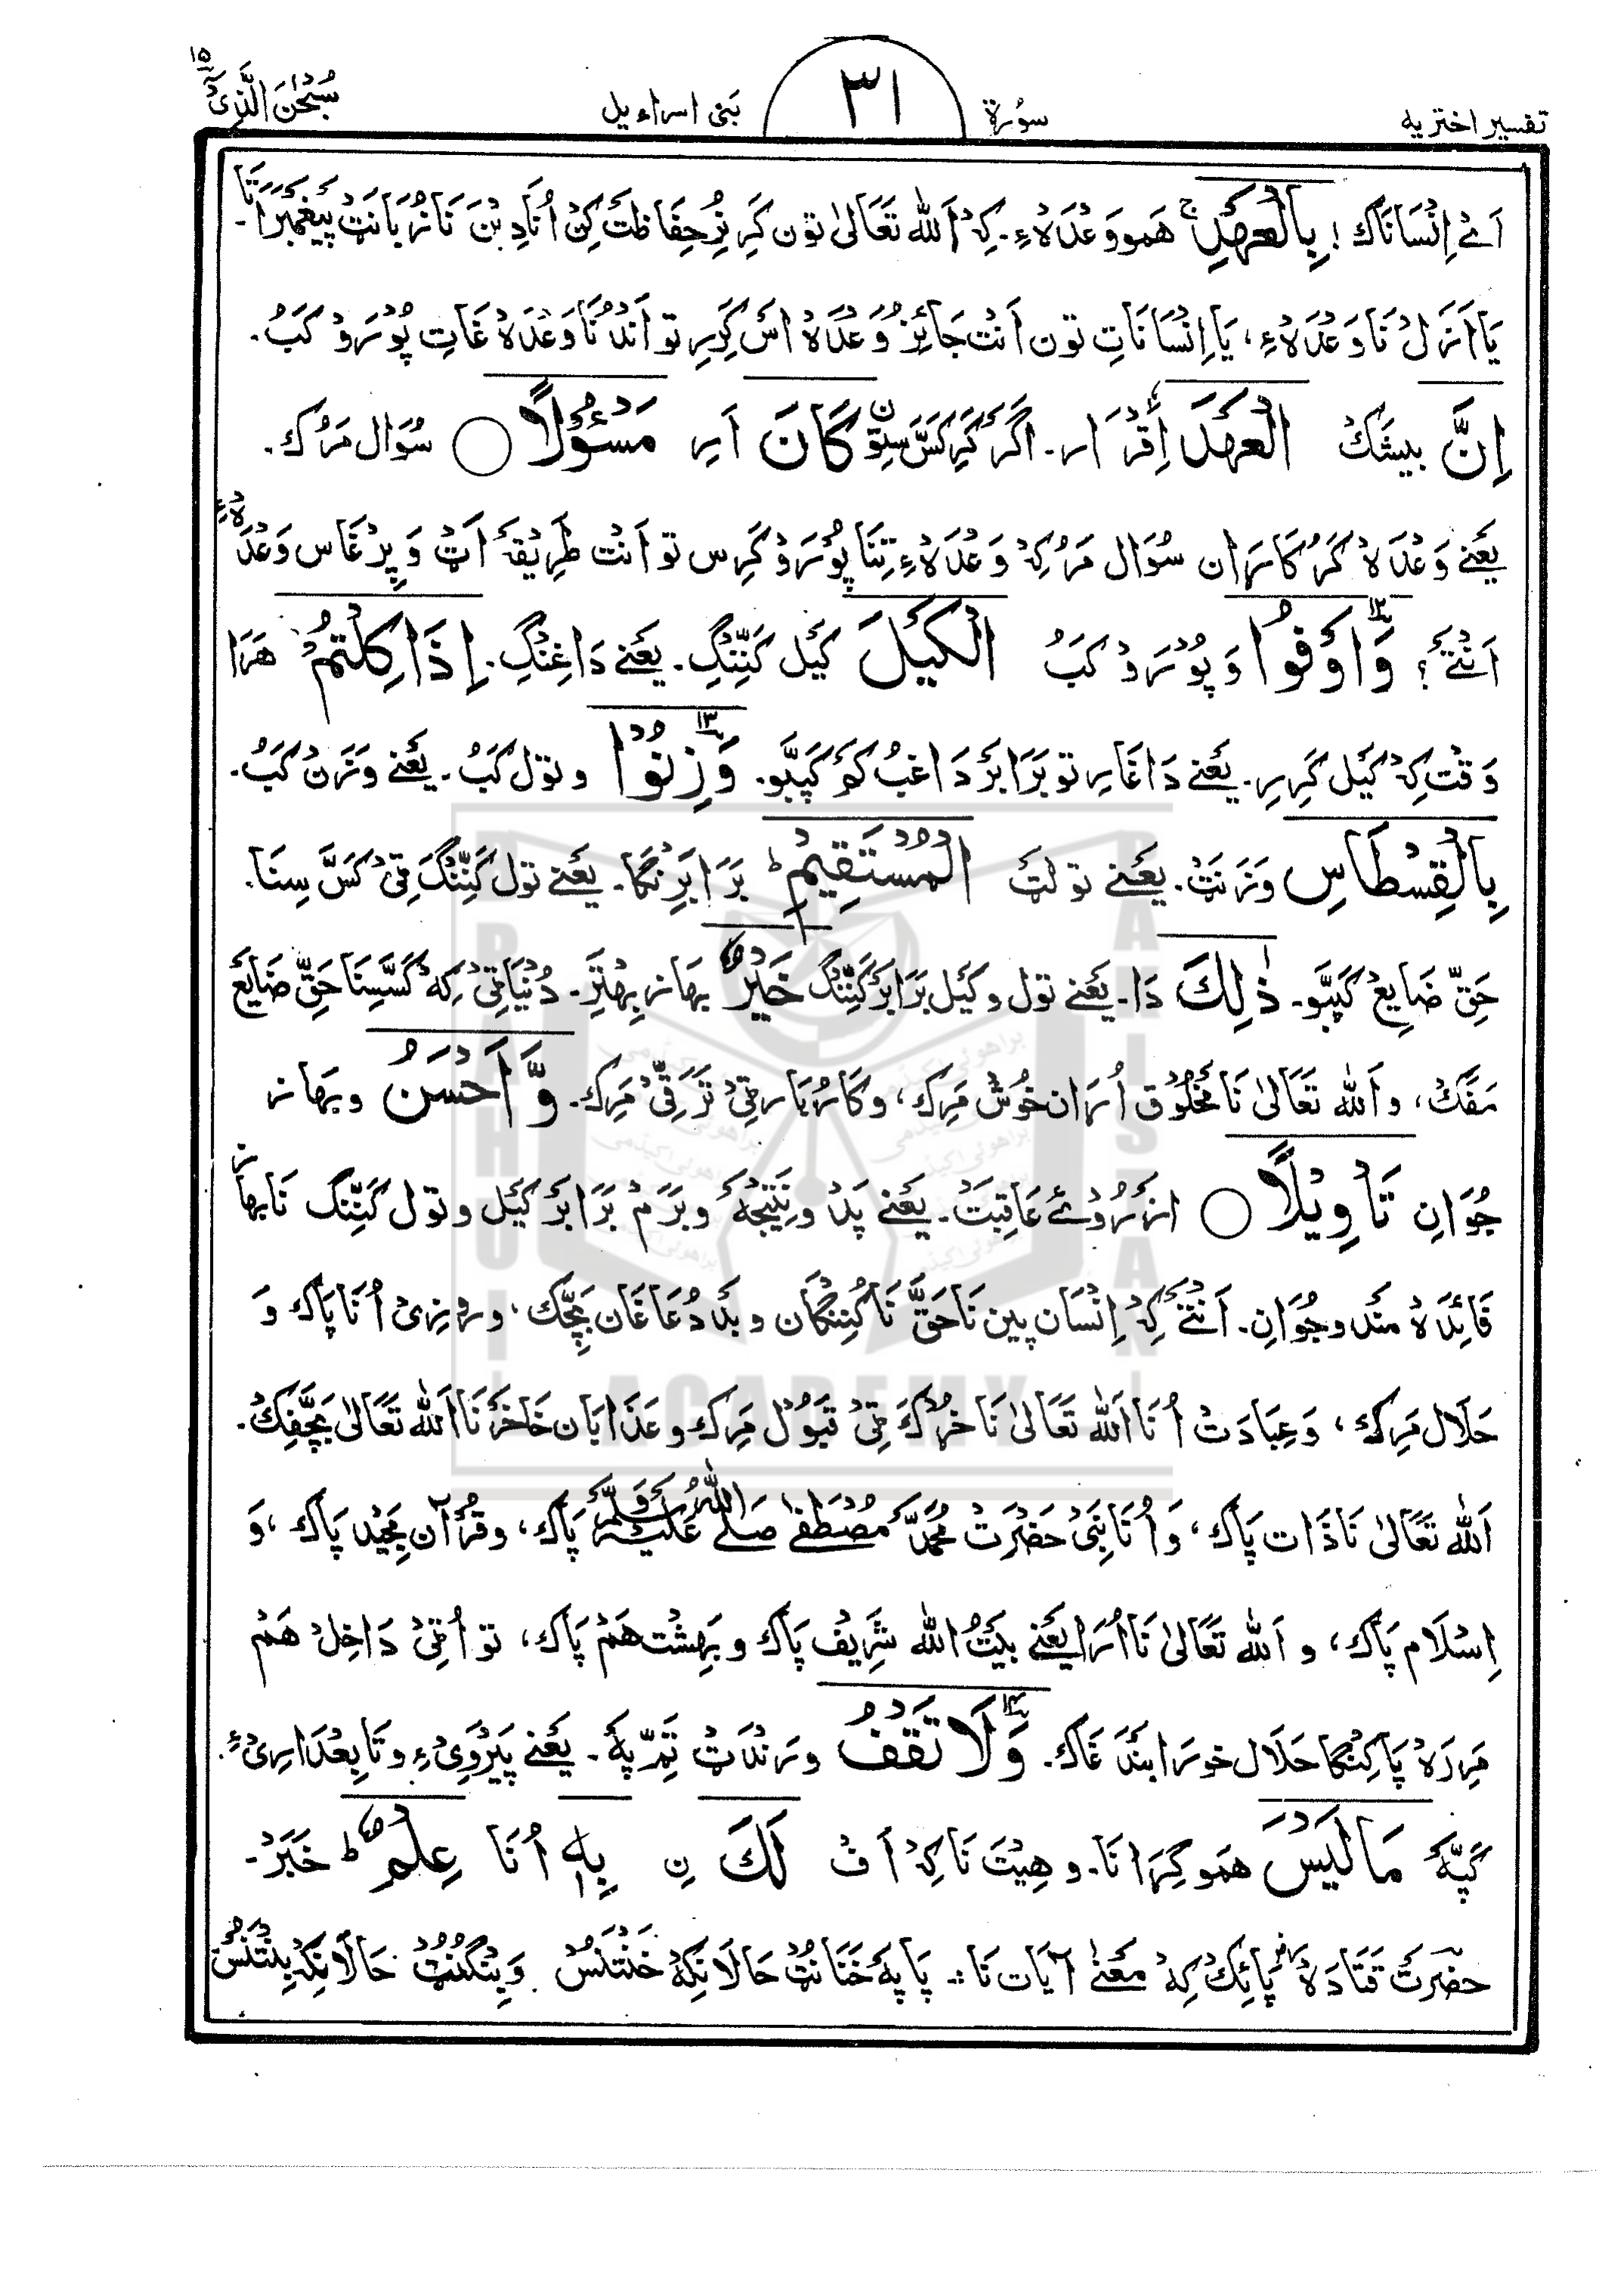 تفسیر اختریه سُورة ٣١ بَنی اسراءیل سُبْحٰنَ الَّذِیْ ١٥
اَےْ اِنْسَانَاک! بِالْعَهْدِ ج هَمو وَعْدَهْءِ۔ کِہْ اَللّٰه تَعَالیٰ تون کَرِ نُمْ حِفَاظَتْ کِنْ اُنَا دِبْنَ نَا زُبَانَٹْ پَیْغَمْبَرَاتَا۔
یَا اَزَلْ نَا وَعْدَهْءِ، یَا اِنْسَانَاتِ تون اَنْتْ جَائِزْ وَعْدَهْ اَسْ کَرِیرِ تو اَنْدُنَا وَعْدَهْ غَاتِ پُوْرَوْ کَبُ۔
اِنَّ بیشَکْ الْعَهْدَ اِقْرَار۔ اَگَرْ کَرِ کَسَّ سِتون کَانَ اَرِ مَسْئُوْلًا ○ سُوَال مَرُک۔
یَعْنے وَعْدَهْ کَرُکَارَان سُوَال مَرُ کِہْ وَعْدَهْءِ تِنَا پُوْرَوْ کَرِس تو اَنْت طَرِیْقَہ اَٹْ وَ پِرْغَاس وَعْدَهْءِ
اَنْتَےْ؟ وَاَوْفُوا وَ پُوْرَوْ کَبُ الْکَیْلَ کَیْل کَنِّنْگِ۔ یَعْنے دَاغِنْگِ۔ اِذَا کِلْتُمْ هَرَا
وَقْت کِہْ کَیْل کَرِیرِ۔ یَعْنے دَاغَارِ تو بَرَابَرْ دَاغِبُ کَم کَپَبُّو۔ وَزِنُوْا و تول کَبُ۔ یَعْنے وَزَنْ کَبُ۔
بِالْقِسْطَاسِ وَزَنَٹْ۔ یَعْنے تولَٹْ الْمُسْتَقِیْمِ ط بَرَابَرِنْگَا۔ یَعْنے تول کَنِّنْگَ ٹِیْ کَسَّ سِنَا۔
حَقِّ ضَایِعْ کَپَبُّو۔ ذٰلِکَ دَا۔ یَعْنے تول و کَیْل بَرَابَرْ کَنِّنْگ خَیْرٌ بهاز بِهْتَرَ۔ دُنْیَا ٹِیْ کِہْ کَسَّسِنَا حَقِّ ضَایِعَ
مَفَّکْ، و اَللّٰه تَعَالیٰ نَا مَخْلُوْق اُرَان خُوْش مَرِک، و کَارُبَار ٹِیْ تَرَقِّیْ مَرِک۔ وَّ اَحْسَنُ و بَهاز
جُوَانِ تَاْوِیْلًا ○ اَزْ رُوْئے عَاقِبَتْ۔ یَعْنے پَدْ و نَتِیْجَہْ و بَرَمْ بَرَابَرْ کَیْل و تول کَنِّنْگ نَا بهاز
فَائِدَهْ مَنْد و جُوَانِ۔ اَنْتَےْ کِہْ اِنْسَان پین نَا حَقَّ نَا کُنِنْگَان و بَد دُعَا غَان بَچِّک، و روزِیْ اُنَا پَاک وَ
حَلَال مَرِک، وَ عِبَادَتْ اُنَا اَللّٰه تَعَالیٰ نَا خُڑْکَ ٹِیْ قَبُوْل مَرِک و عَذَابَان خَاخَرْ نَا اَللّٰه تَعَالیٰ بَچَّفِکْ۔
اَللّٰه تَعَالیٰ نَا ذَات پَاک، وَ اُنَا نَبِیْ حَضْرَتْ مُحَمَّد مُصْطَفٰے صَلَے اللّٰهُ عَلَیْہِ وَسَلَّمَ پَاک، و قُرْآن مَجِیْد پَاک، وَ
اِسْلَام پَاک، و اَللّٰه تَعَالیٰ نَا اُرَا یَعْنے بَیْتُ اللّٰه شَرِیْف پَاک و بَهِشْت هَمْ پَاک، تو اُ ٹِیْ دَاخِلْ هَمْ
مَرِرَهْ پَاکِنْگَا حَلَال خورَا بَنْدَ غَاک۔ وَلَا تَقْفُ و رَنْدَٹْ تَمَّ پَہ۔ یَعْنے پَیْرَوِیْءِ و تَابِعْدَارِیْءِ۔
کَپَّہ مَالَیْسَ هَمو گِرَانَا۔ و هِیْتَ نَا کِہْ اَفْ لَکَ نِ بِهٖ اُنَا عِلْمٌ ط خَبَرْ۔
حضرتْ قَتَادَهْ پَائِکْ کِہْ مَعْنٰے آیَات نَا :۔ پَا پَہ خَنَانُٹْ حَالَانِکِہْ خَنْتَنُسْ وَ بِنْگُنُٹْ حَالَانِکِہْ بِنْتَنُسْ
براهوئی اکیڈمی
BRAHUI ACADEMY PAKISTAN